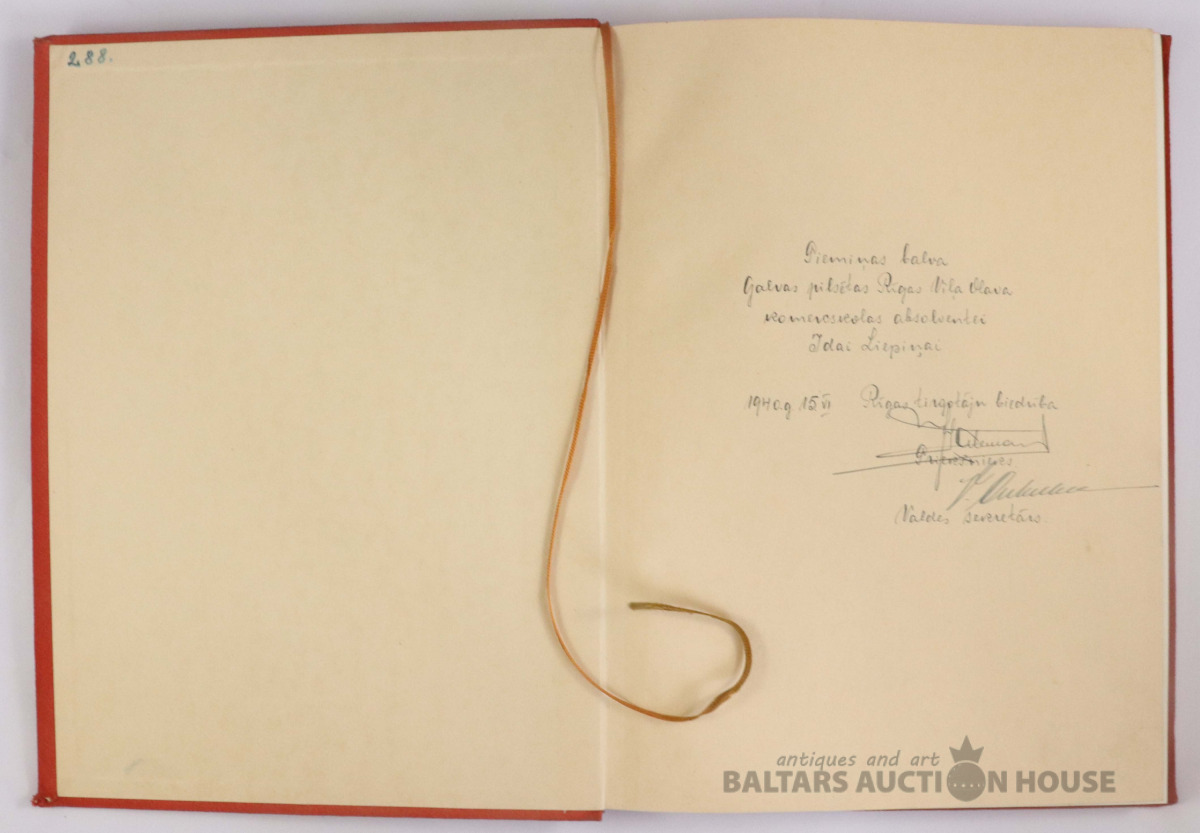 288.
Piemiņas balva
Galvas pilsētas Rīgas Viļa Olava
komercskolas absolventei
Idai Liepiņai
1940.g. 15.VI Rīgas tirgotāju biedrība
Priekšnieks
Valdes sekretārs.
antiques and art
BALTARS AUCTION HOUSE